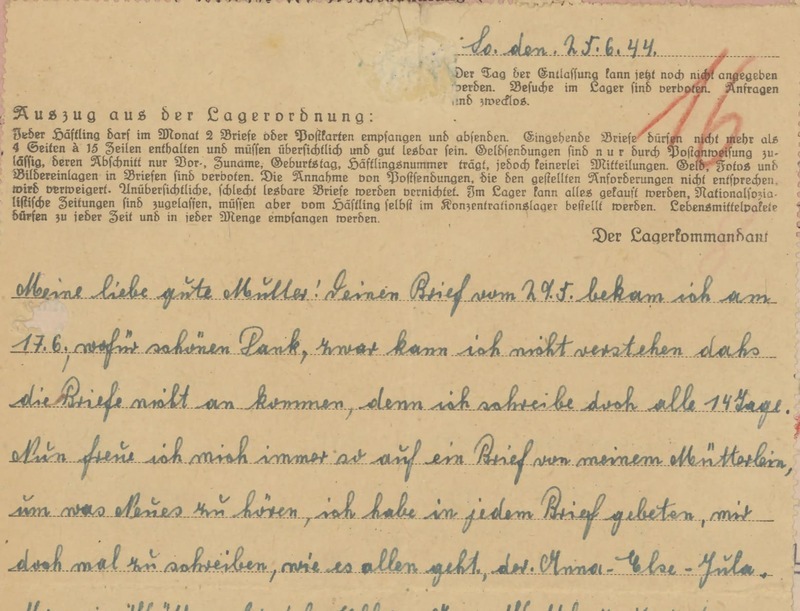 So. den. 25.6.44.
16
Der Tag der Entlassung kann jetzt noch nicht angegeben
werden. Besuche im Lager sind verboten. Anfragen
sind zwecklos.
Auszug aus der Lagerordnung:
Jeder Häftling darf im Monat 2 Briefe oder Postkarten empfangen und absenden. Eingehende Briefe dürfen nicht mehr als
4 Seiten à 15 Zeilen enthalten und müssen übersichtlich und gut lesbar sein. Geldsendungen sind nur durch Postanweisung zu-
lässig, deren Abschnitt nur Vor-, Zuname, Geburtstag, Häftlingsnummer trägt, jedoch keinerlei Mitteilungen. Geld, Fotos und
Bildereinlagen in Briefen sind verboten. Die Annahme von Postsendungen, die den gestellten Anforderungen nicht entsprechen,
wird verweigert. Unübersichtliche, schlecht lesbare Briefe werden vernichtet. Im Lager kann alles gekauft werden, Nationalsozia-
listische Zeitungen sind zugelassen, müssen aber vom Häftling selbst im Konzentrationslager bestellt werden. Lebensmittelpakete
dürfen zu jeder Zeit und in jeder Menge empfangen werden.
Der Lagerkommandant
Meine liebe gute Mutter! Deinen Brief vom 29.5. bekam ich am
17.6., wofür schönen Dank, zwar kann ich nicht verstehen dahs
die Briefe nicht an kommen, denn ich schreibe doch alle 14 Tage.
Nun freue ich mich immer so auf ein Brief von meinem Mütterlein,
um was Neues zu hören, ich habe in jedem Brief gebeten, mir
doch mal zu schreiben, wie es allen geht, der. Anna-Else-Jula.